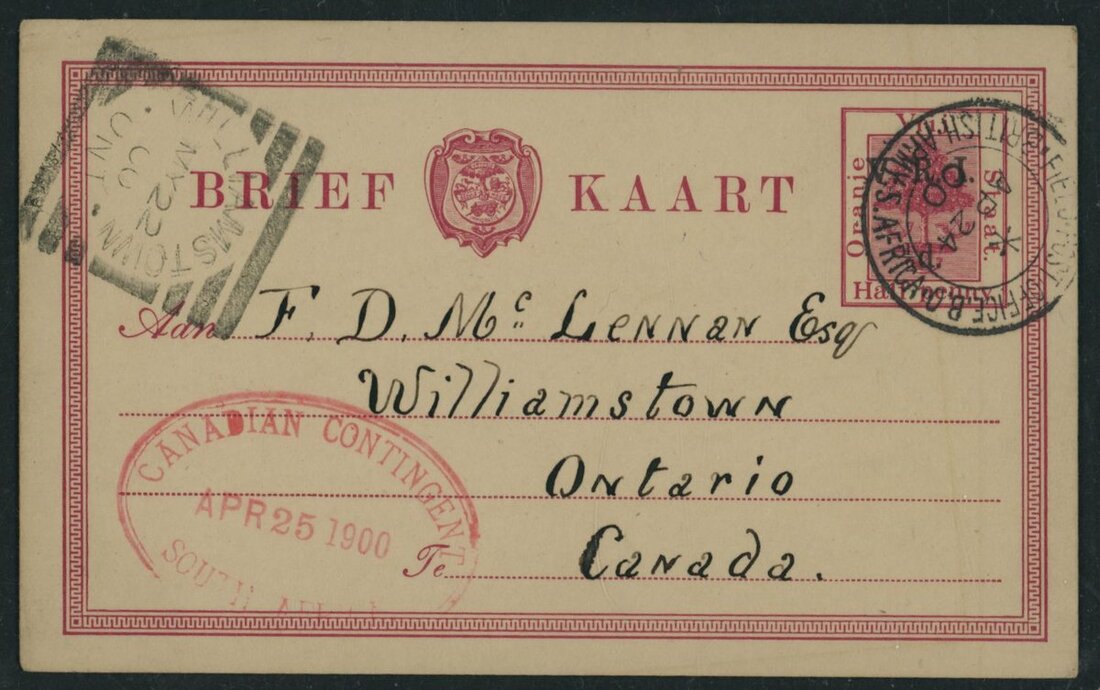 BRIEF KAART
V.R.I.
Oranje
Staat.
Half Penny
WILLIAMSTOWN
MY 22
00
ONT.
FIELD POST OFFICE B.O.
AP 24
00
BRITISH ARMY S. AFRICA
Aan F. D. Mc Lennan Esq
Williamstown
Ontario
Te Canada.
CANADIAN CONTINGENT
APR 25 1900
SOUTH AFRICA